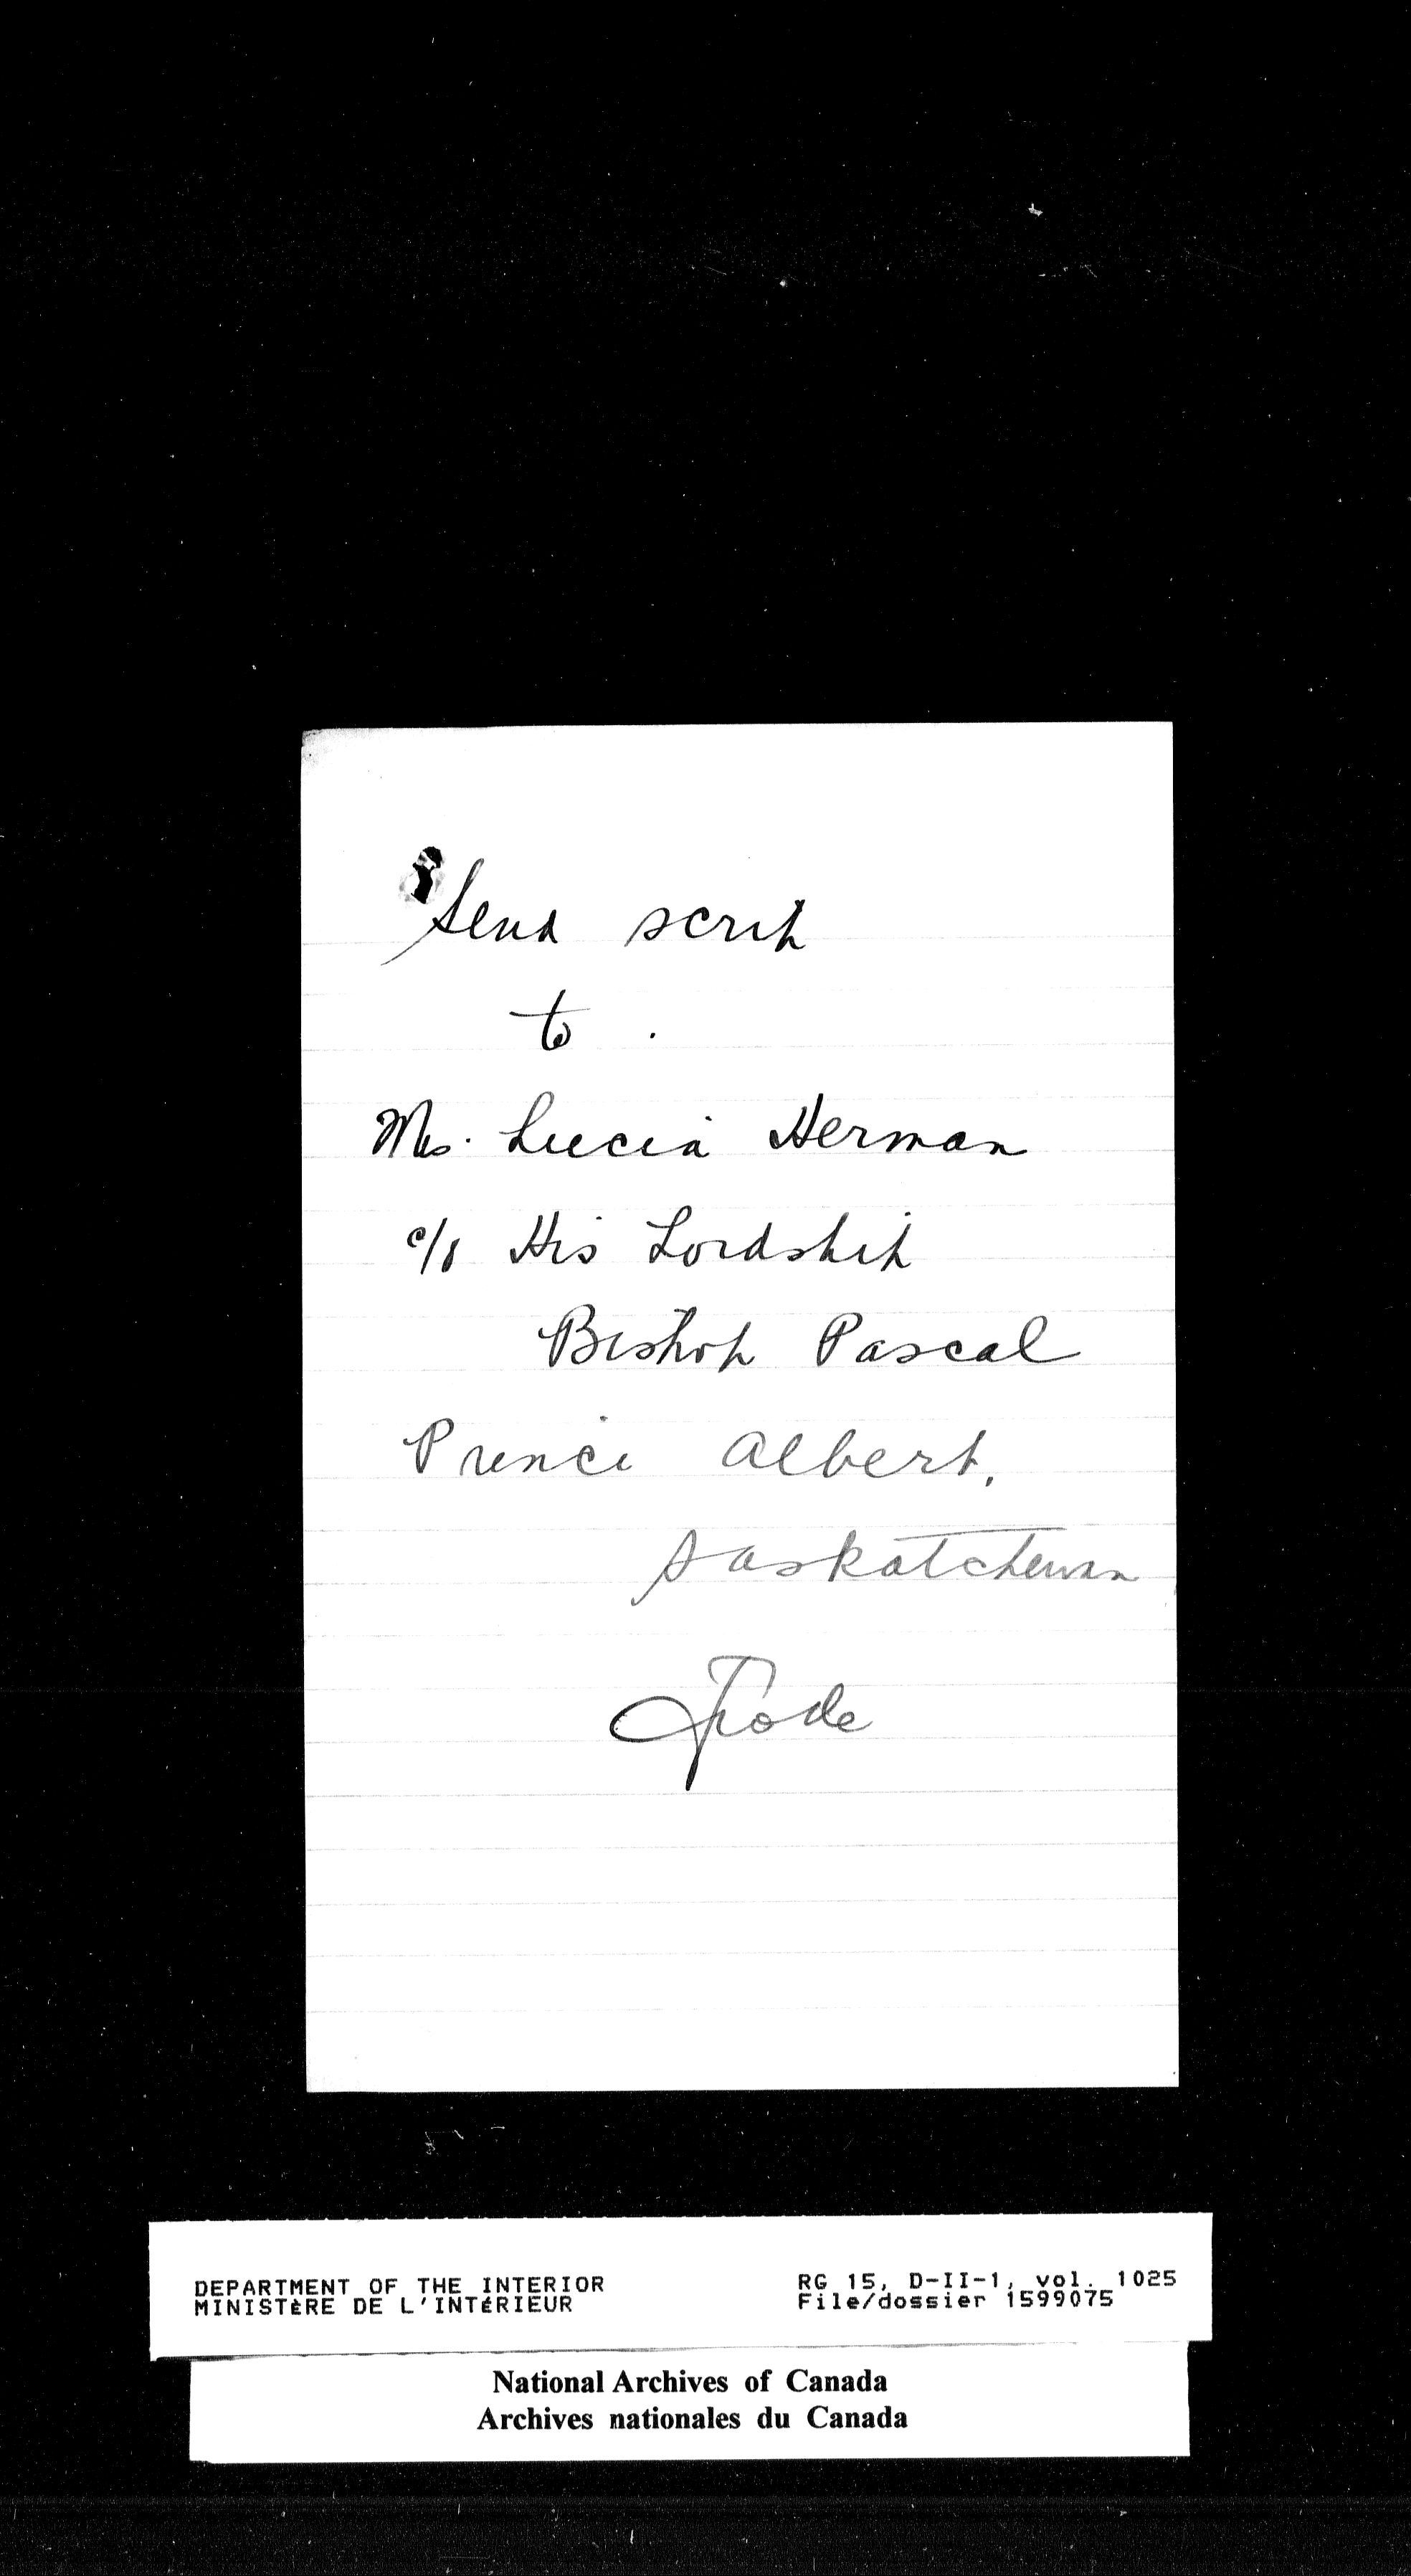 Send scrip
to .
Mrs. Lucia Herman
c/o His Lordship
Bishop Pascal
Prince Albert.
Saskatchewan
DEPARTMENT OF THE INTERIOR
MINISTÈRE DE L'INTÉRIEUR
RG 15, D-II-1, vol. 1025
File/dossier 1599075
National Archives of Canada
Archives nationales du Canada